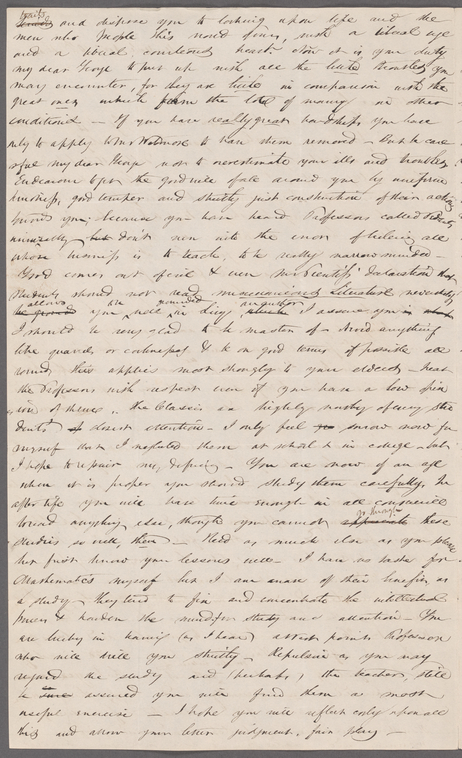 and dispose you to looking upon life and the
men who people this round of ours, with a liberal eye
and a liberal courteous heart. Now it is your duty
my dear George to put up with all the little troubles you
may encounter, for they are little in comparison with the
great ones which form the lot of many in other
conditions — If you have really great hardships you have
only to apply to Mr to have them removed — But be care
=ful my dear George not to overestimate your ills and troubles
Endeavour to get the good will of all around you by
kindness, good temper and strictly just construction of their acts
towards you; because you have heard Professors called
don't run into the error of believing all
whose business is to teach, to be really narrow minded —
Good comes out of evil & even Declaration that
Students should not read miscellaneous Literature
allows you are well in I assure you
I should be very glad to be master of — Avoid anything
like quarrels or & be on good terms if possible all
round. This applies most strongly to your elders — treat
the Professors with respect even if you have a low opin
ion of them. The Classics are highly worthy of every Stu
dents' closest attention — I only feel now for
myself that I neglected them at school & in college — but
I hope to repair my — You are now of an age
when it is proper you should study them carefully. In
after life you will have time enough in all conscience
to read anything else, though you cannot go through these
studies so well, then — Read as much else as you please
but first know your lessons well — I have no taste for
Mathematics myself but I am aware of their benefits as
a study — They tend to fix and concentrate the intellectual
powers & harden the mind for study and attention — You
are lucky in having (as I hear) a Professor
who will drill you strictly — Repulsive as you may
regard the study and perhaps, the teacher, still
be assured you will find them a most
useful exercise — I hope you will reflect coolly upon all
this and allow your better judgment, fair play —